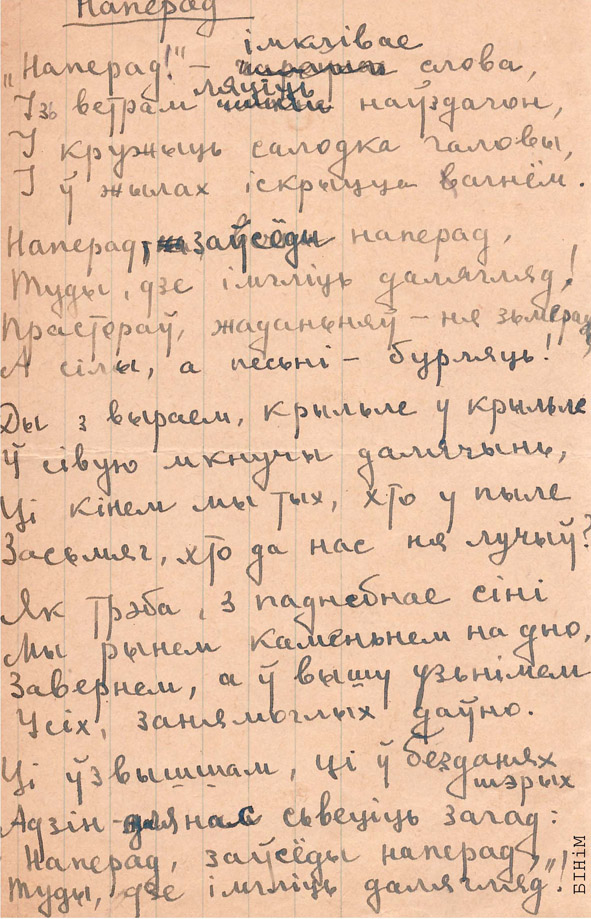 Наперад
„Наперад!“ – імклівае слова,
Ізь ветрам ляціць наўздагон,
І кружыць салодка галовы,
І ў жылах іскрыцца вагнём.
Наперад, заўсёды наперад,
Туды, дзе імгліць далягляд!
Прастораў, жаданьняў – ня зьмераць
А сілы, а песьні – бурляць!
Ды з выраем, крыльле у крыльле
Ў сівую мкнучы далячынь,
Ці кінем мы тых, хто у пыле
Засьмяг, хто да нас ня лучыў?
Як трэба, з паднебнае сіні
Мы рынем каменьнем на дно,
Завернем, а ў вышу узьнімем
Усіх, занямоглых даўно.
Ці ўзвышшам, ці ў безданях
шэрых
Адзін для нас сьвеціць загад:
Наперад, заўсёды наперад,
Туды, дзе імгліць далягляд“!
БІНіМ